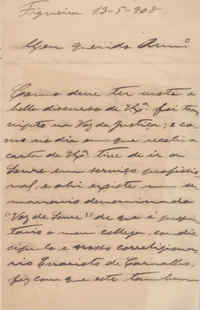 Figueira 13-5-908
Meu querido Amigo
Como deve ter visto o
bello discurso de V. Exª foi trans
cripto na Voz da Justiça; e co
mo no dia em que recebi a
carta de V. Exª tive de ir a
Soure em serviço profissio
nal, e ali existe um se
manario denominado
"Voz de Soure" de que é proprie
tario o meu collega, condis
cipulo e nosso correligiona
rio Evaristo de Carvalho,
fiz com que este tambem